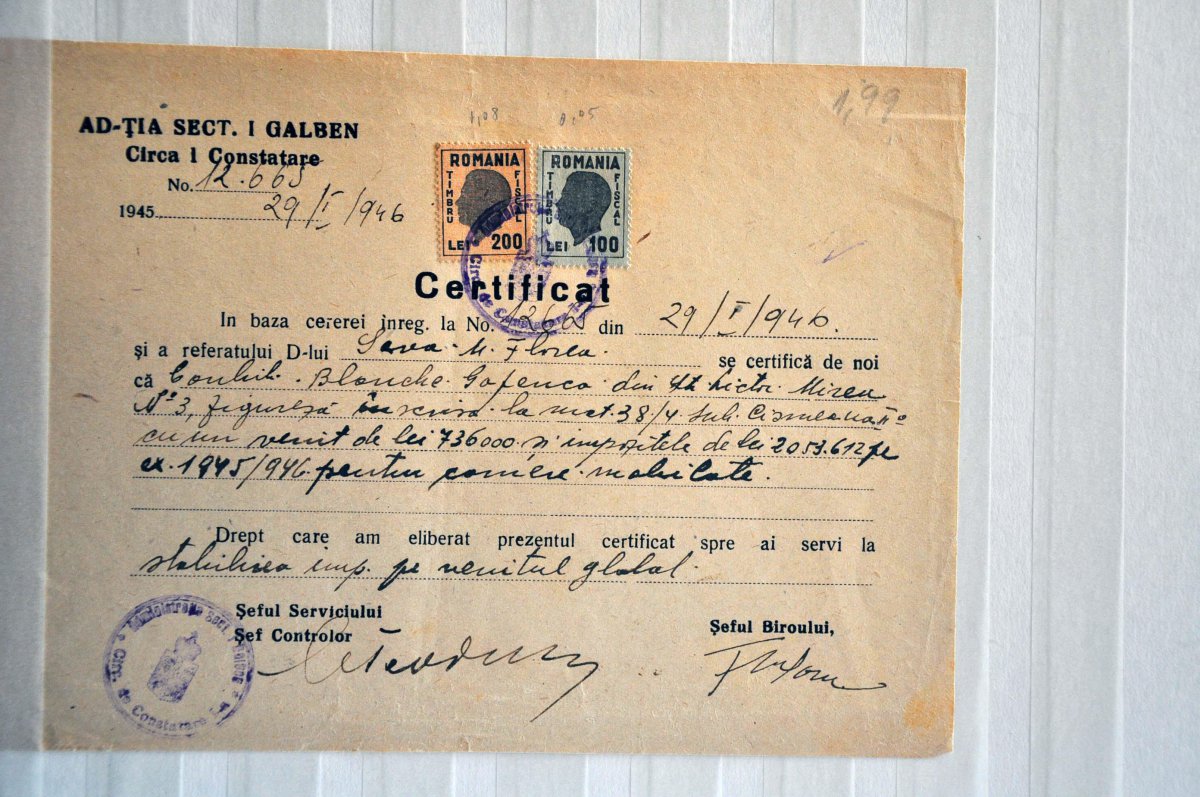 1,08 0,05
1,99
AD-ȚIA SECT. I GALBEN
Circa I Constatare
No. 12.665
1945. 29/I/946
ROMANIA
TIMBRU FISCAL
LEI 200
ROMANIA
TIMBRU FISCAL
LEI 100
Certificat
In baza cererei înreg. la No. din 29/I/946.
și a referatului D-lui Sava M. Florea se certifică de noi
că Contrib. Blanche Gafencu din Mircea
No 3, figurează înscrisă la mat. 38/4 sub.
cu un venit de lei 736000 și impozitele de lei 2053.612 pe
ex. 1945/946 pentru camere mobilate.
Drept care am eliberat prezentul certificat spre ai servi la
stabilirea imp. pe venitul global.
Șeful Serviciului
Șef Controlor
Șeful Biroului,
Administrația Sect. I Galben
Circ. de Constatare